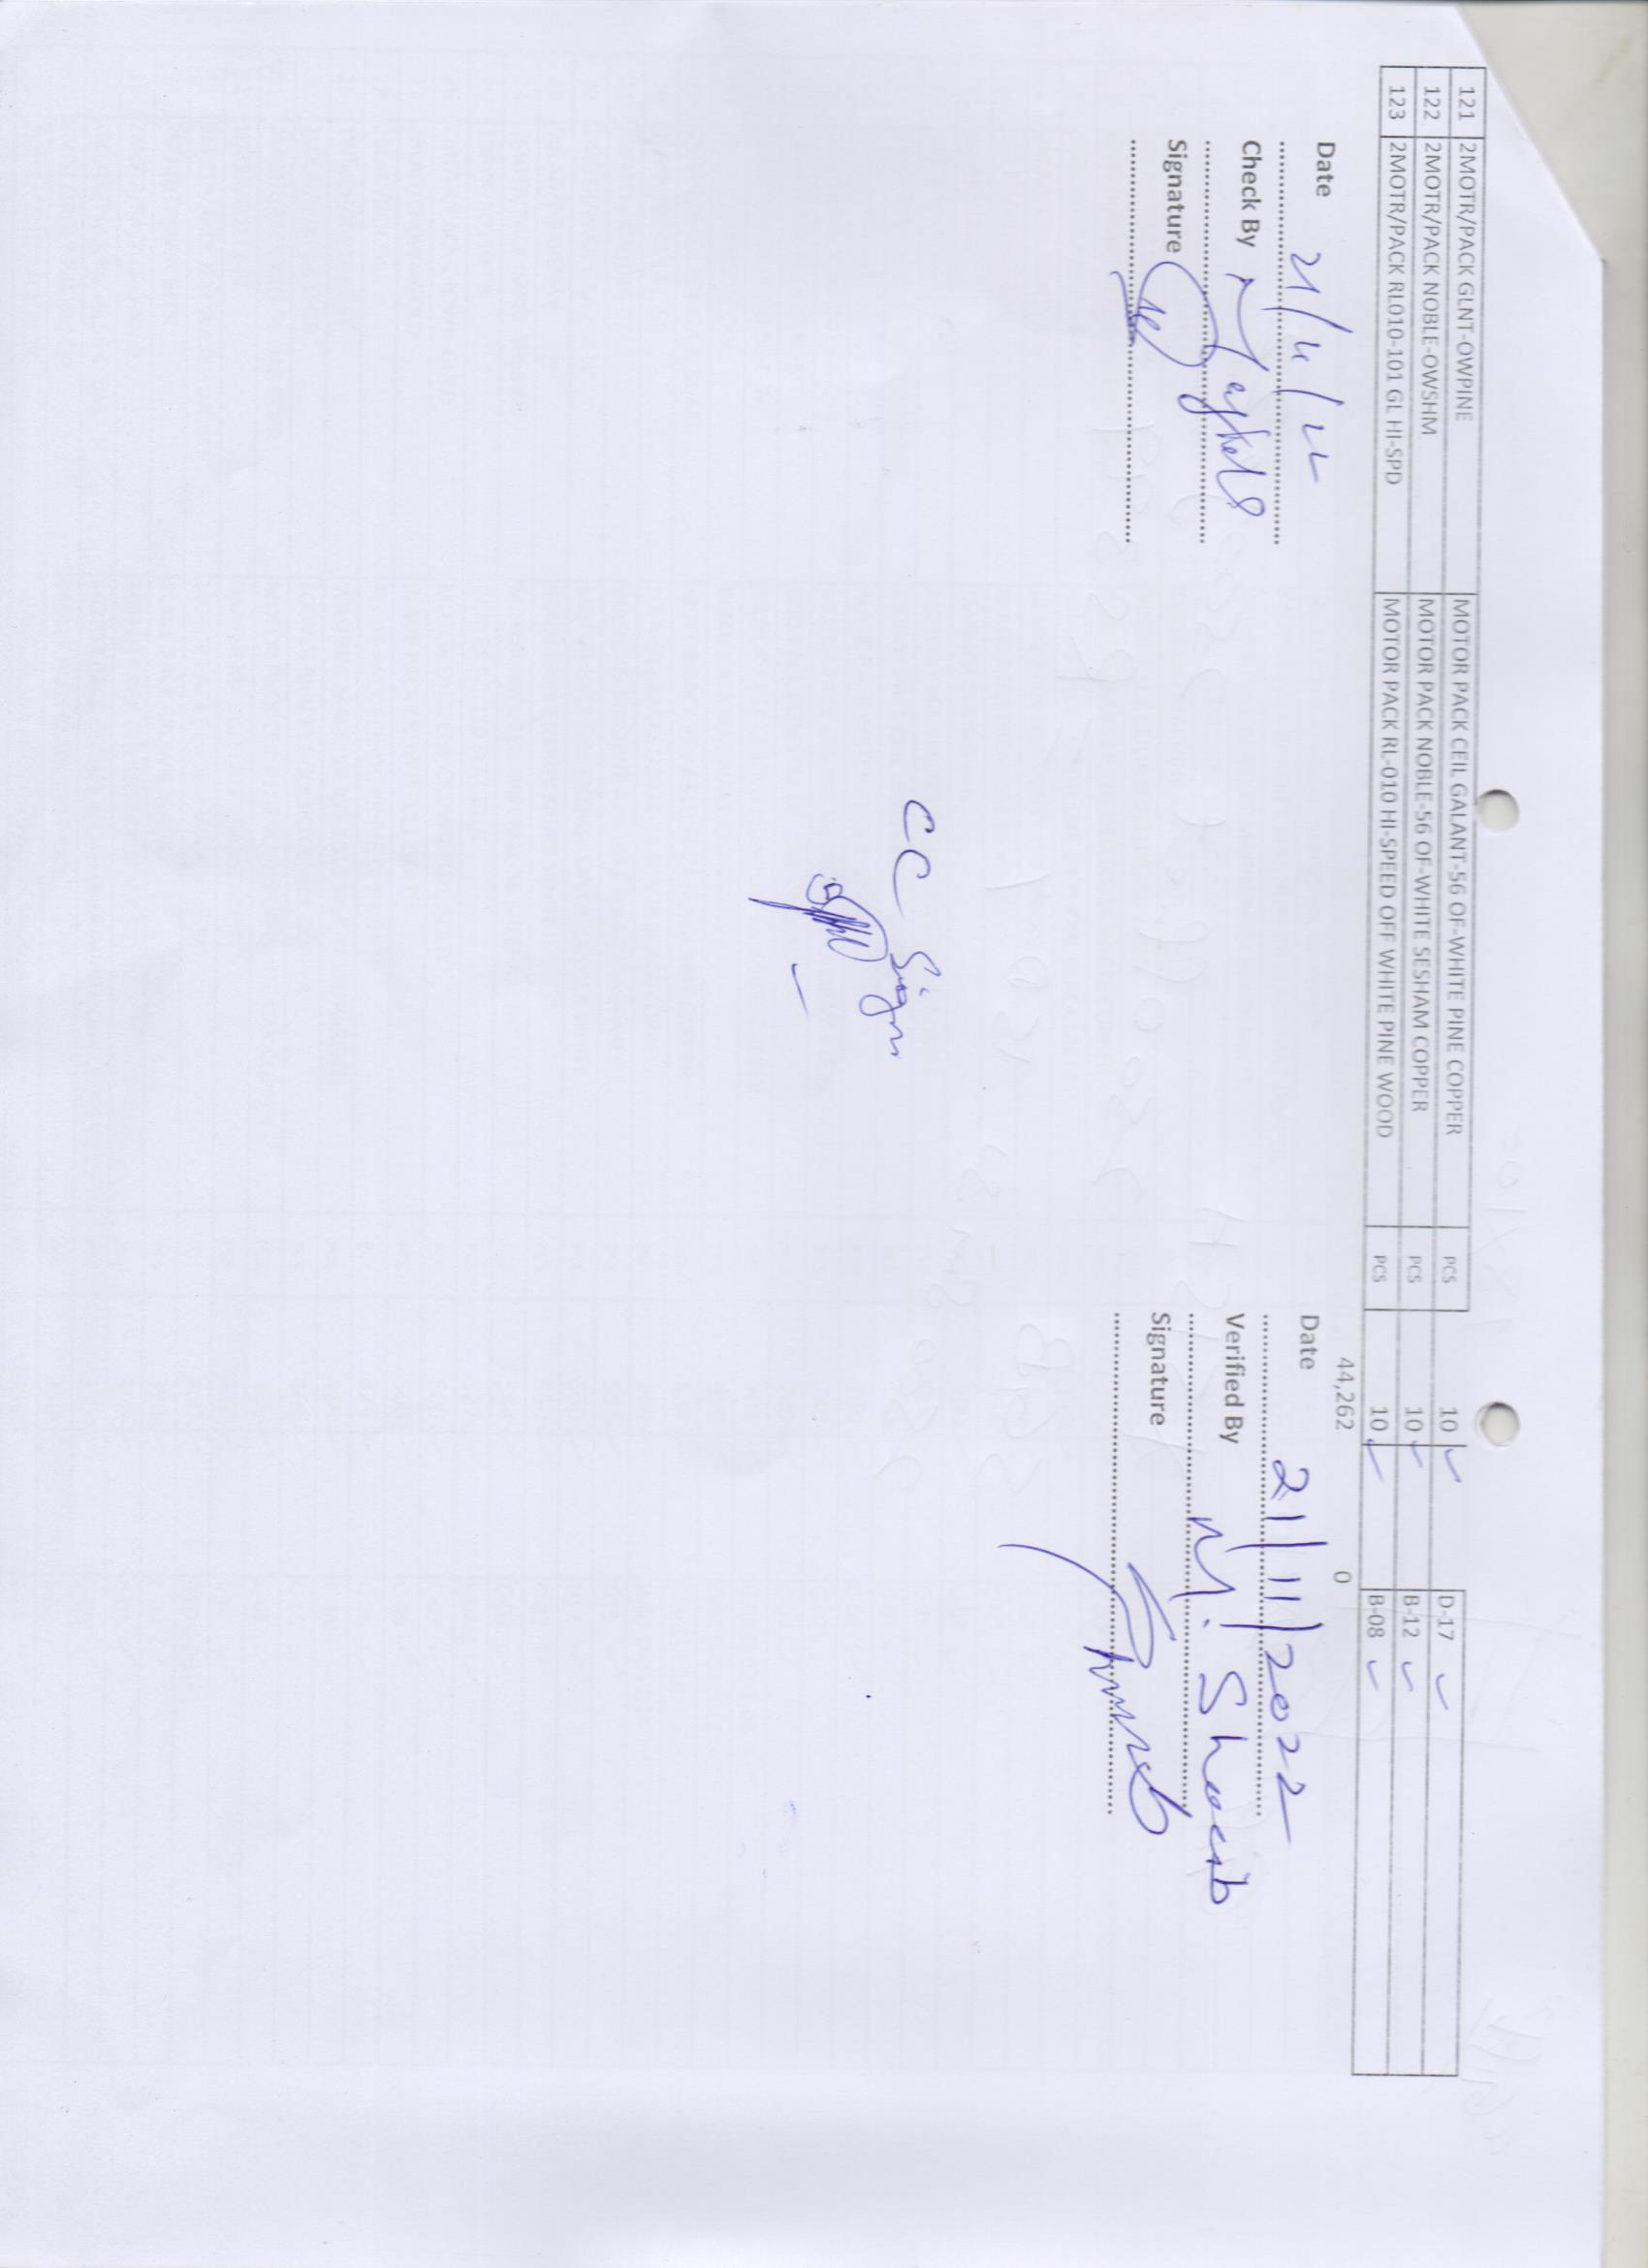 121 2MOTR/PACK GLNT-OWPINE MOTOR PACK CEIL GALANT-56 OF-WHITE PINE COPPER PCS 10 ✓ D-17 ✓
122 2MOTR/PACK NOBLE-OWSHM MOTOR PACK NOBLE-56 OF-WHITE SESHAM COPPER PCS 10 ✓ B-12 ✓
123 2MOTR/PACK RL010-101 GL HI-SPD MOTOR PACK RL-010 HI-SPEED OFF WHITE PINE WOOD PCS 10 ✓ B-08 ✓
44,262 0
Date 21/11/22
Check By
Signature
Date 21/11/2022
Verified By M. Shoaib
Signature
CC Sign